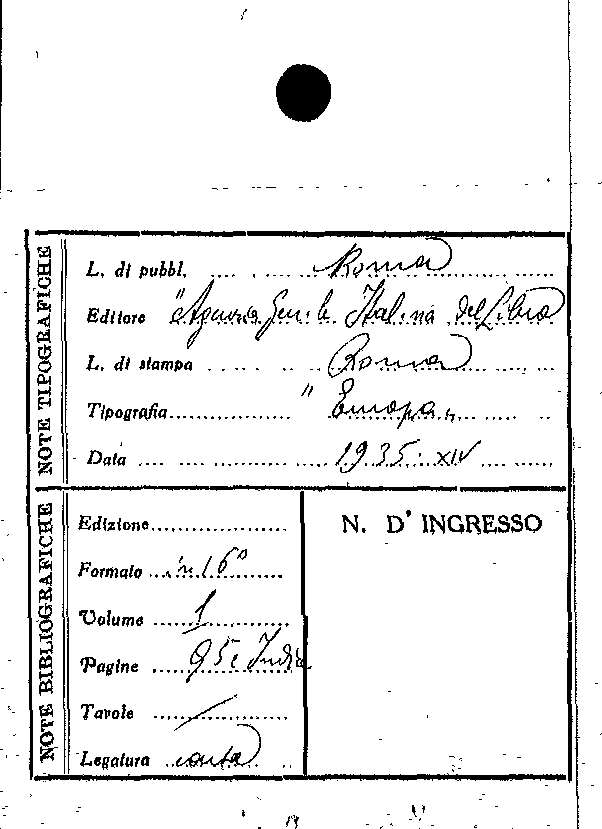 NOTE TIPOGRAFICHE
L. di pubbl. Roma
Editore "Agenzia Gen. le Italiana del Libro
L. di stampa Roma
Tipografia "Europa"
Data 1935. XIV
NOTE BIBLIOGRAFICHE
Edizione
Formato in 16°
Volume 1
Pagine 95 e Indice
Tavole /
Legatura carta
N. D' INGRESSO